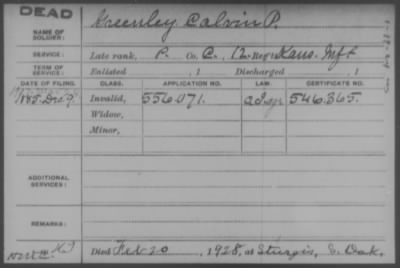 DEAD
NAME OF SOLDIER: Greenley Calvin P.
SERVICE: Late rank, P. Co. C, 12 Reg't Kans. Inft
TERM OF SERVICE: Enlisted , 1 Discharged , 1
DATE OF FILING. CLASS. APPLICATION NO. LAW. CERTIFICATE NO.
1885 Dec 9. Invalid, 556.071. 546.365.
Widow,
Minor,
ADDITIONAL SERVICES:
REMARKS:
Died Feb 20 , 1928, at Sturgis, S. Dak.